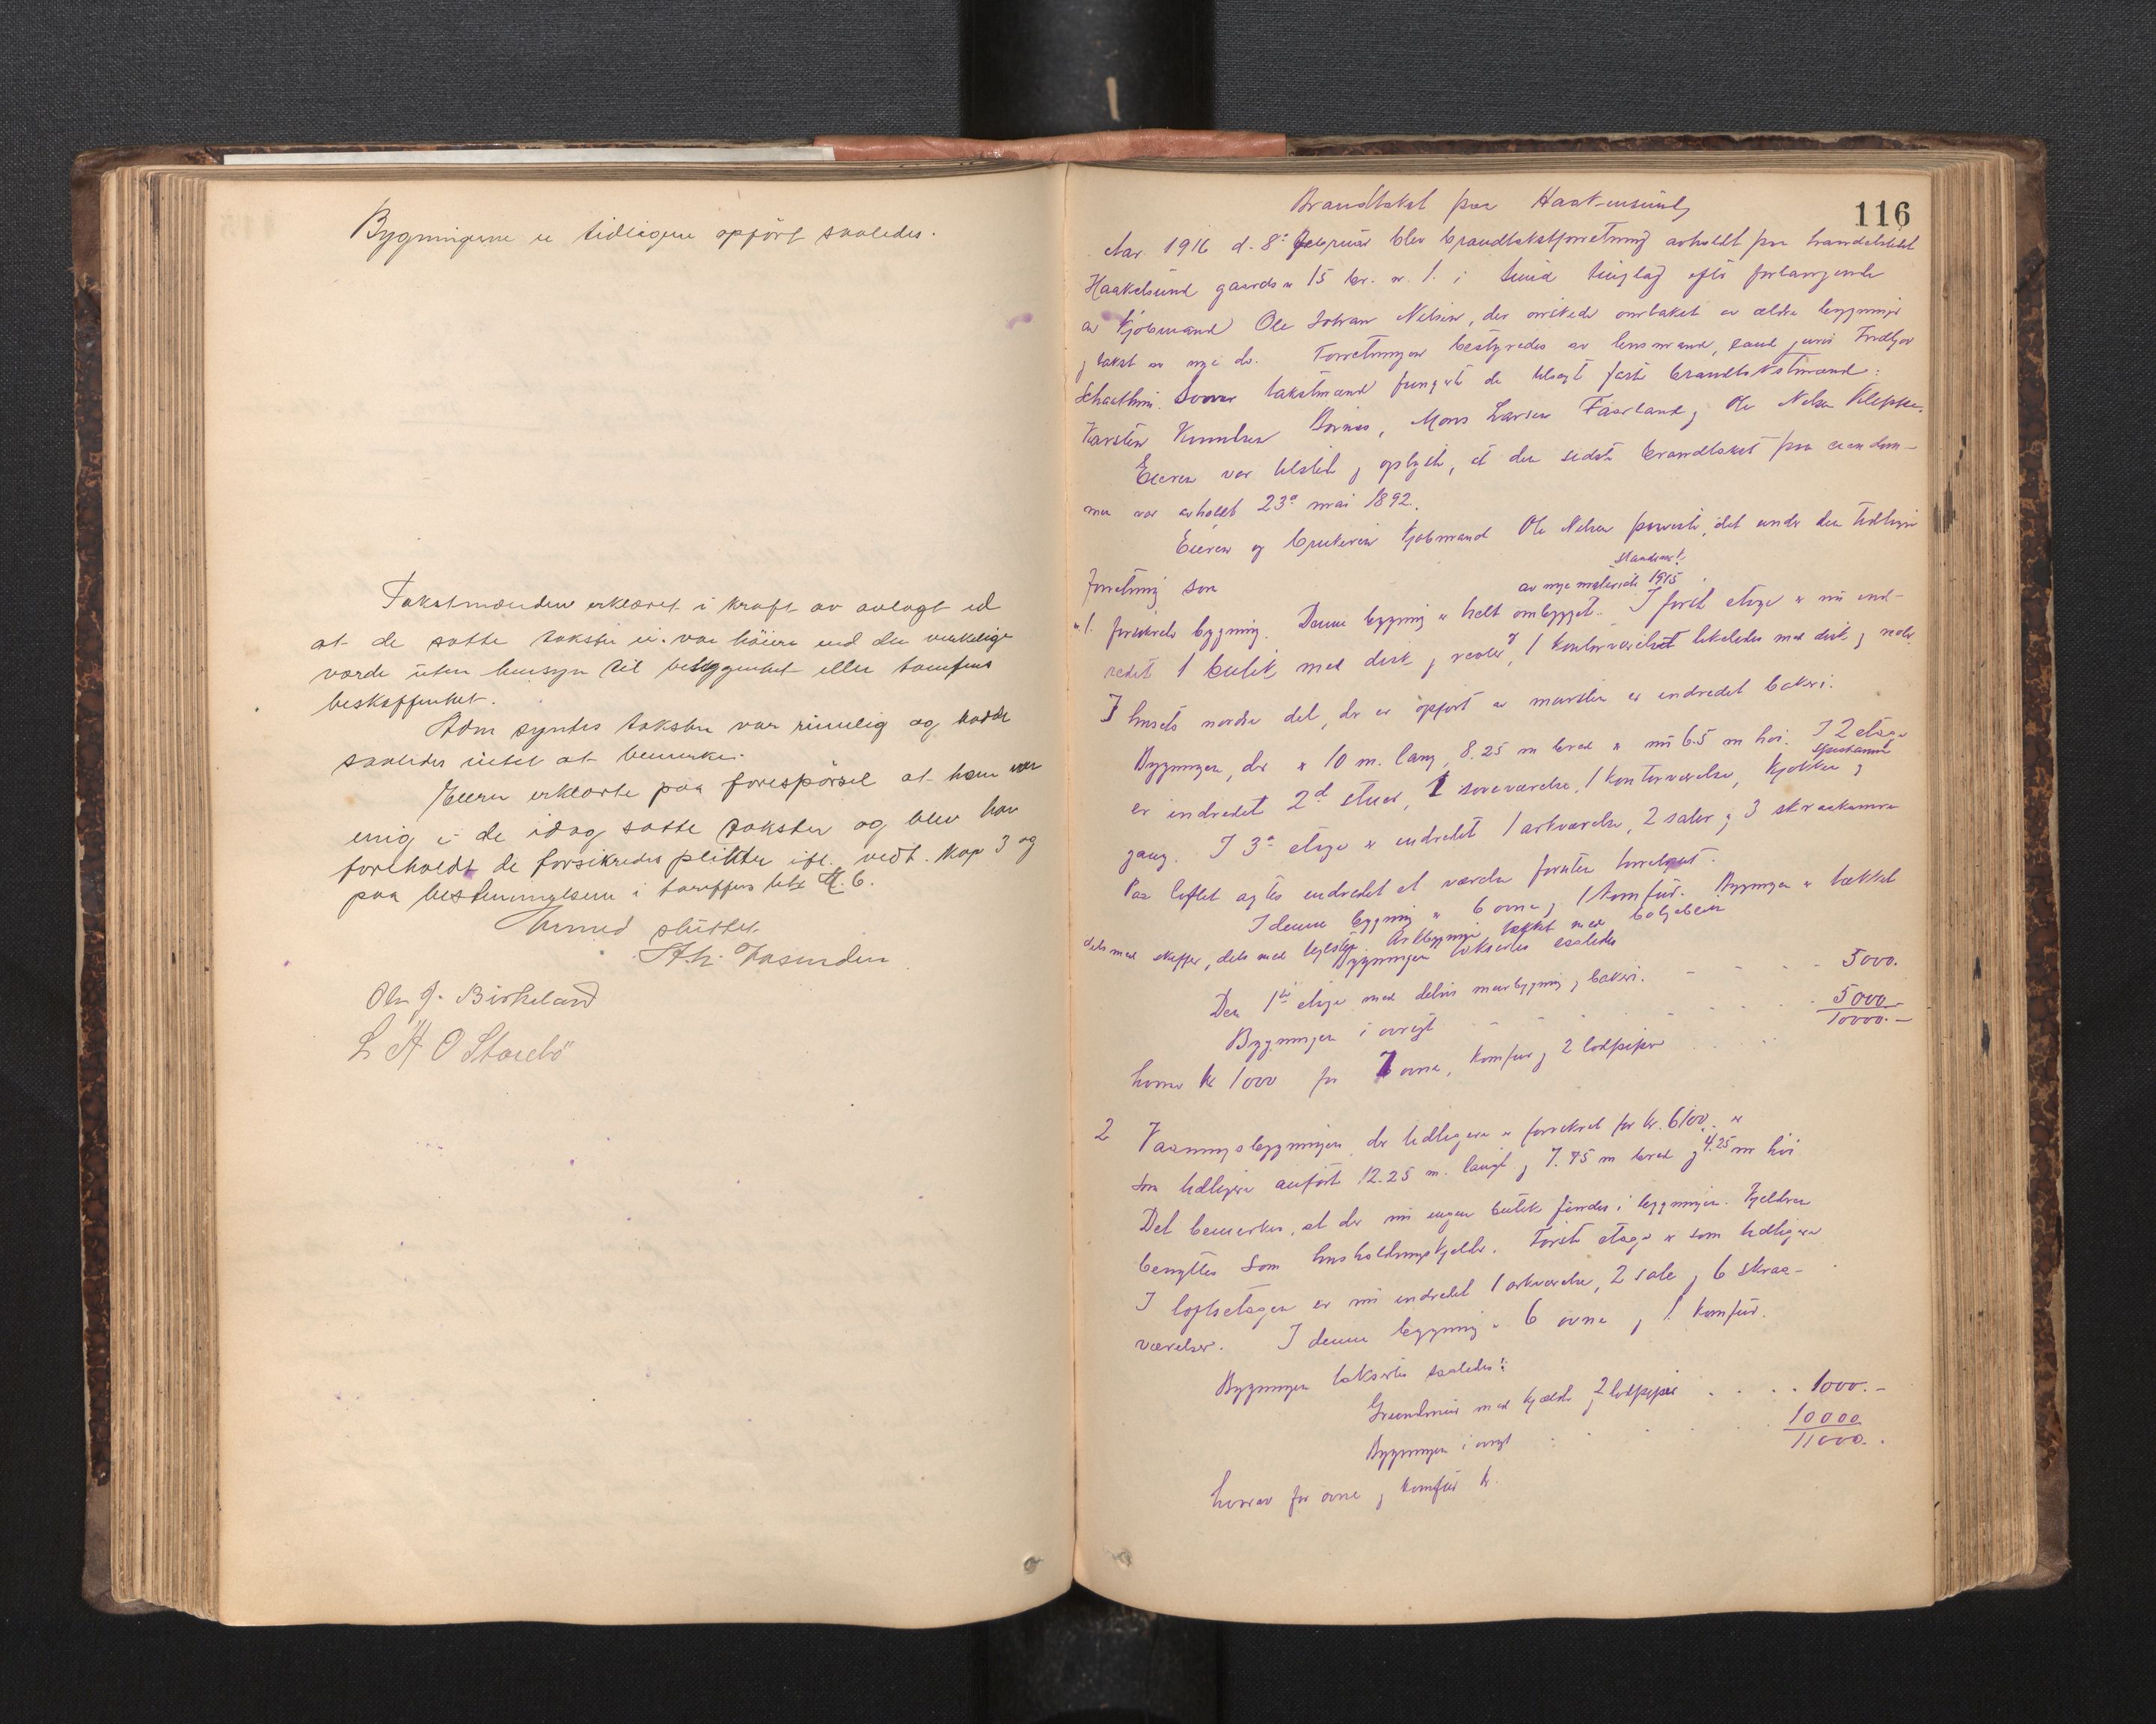 Bygningerne er tidligere opført saaledes.
Takstmændene erklæret i kraft av avlagt ed
at de satte takster ei var höiere end den virkelige
værde uten hensyn til beliggenhet eller tomtens
beskaffenhet.
Adm syntes taksten var rimelig og hadde
saaledes intet at bemerke.
Eieren erklærte paa forespörsel at han var
enig i de idag satte takster og blev han
foreholdt de forsikredes plikter ifl. vedt. Kap 3 og
paa bestemmelsene i tariffens litr 6.
Hermed sluttet
Ole J. Birkeland
L H O Storebö
116
Brandtakst paa Haakensund
Aar 1916 d. 8de februar blev brandtakstforretning avholdt paa handelsstedet
Haakelsund gaards nr 15 br. nr. 1. i Sund tinglag efter forlangende
av Kjöbmand Ole Johan Nilsen, der önskede omtakst av ældre bygninger
og takst av nye do. Forretningen bestyredes av lensmand, cand juris Fridtjov
Som takstmænd fungerte de tilsagte faste brandtakstmænd:
Karsten Knudsen Bornes, Mons Larsen Faarland og Ole Nelsen Kleppe.
Eieren var tilstede og oplyste, at den sidste brandtakst paa eiendom-
men var avholdt 23de mai 1892.
Eieren og brukeren Kjöbmand Ole Nelsen paaviste, det under den tidligere
forretning som
av nye materialer 1915
nr. 1. forsikrede bygning. Denne bygning er helt ombygget. I förste etage er nu ind-
redet 1 butik med disk og reoler, 1 kontorværelset likeledes med disk og reoler
I husets nordre del, der er opført av mursten er indredet bakeri.
Bygningen, der er 10 m. lang, 8.25 m bred er nu 6.5 m höi. I 2 etage
er indredet 2 stuer, 1 soveværelse, 1 kontorværelse, kjökken og spisekammer
gang. I 3de etage er indredet 1 arkværelse, 2 saler og 3 skraakamre
Paa loftet agtes indredet et værelse foruten törreloft.
I denne bygning er 6 ovne og 1 komfur. Bygningen er tækket
dels med skiffer, dels med teglsten. Arkbygningen tækket med bölgeblik
Bygningen takseres saaledes
Den 1ste etage med delvis murbygning og bakeri. 5000.
Bygningen i övrigt 5000.-
10000.-
hvorav kr 1000 for 7 ovne, komfur og 2 lodpiper
2 Vaaningsbygningen der tidligere er forsikret for kr. 6100.- er
som tidligere anført 12.25 m. langt og 7.75 m bred og 4.25 m höi
Det bemerkes, at der nu ingen butik findes i bygningen. Kjelderen
benyttes som husholdningskjelder. Förste etage er som tidligere
I loftsetagen er nu indredet 1 arkværelse, 2 sale og 6 skraa-
værelser. I denne bygning er 6 ovne og 1 komfur.
Bygningen takseres saaledes:
Grundmur med kjelder og 2 lodpiper 1000.-
Bygningen i övrigt 10000
11000.-
hvorav for ovne og komfur kr.